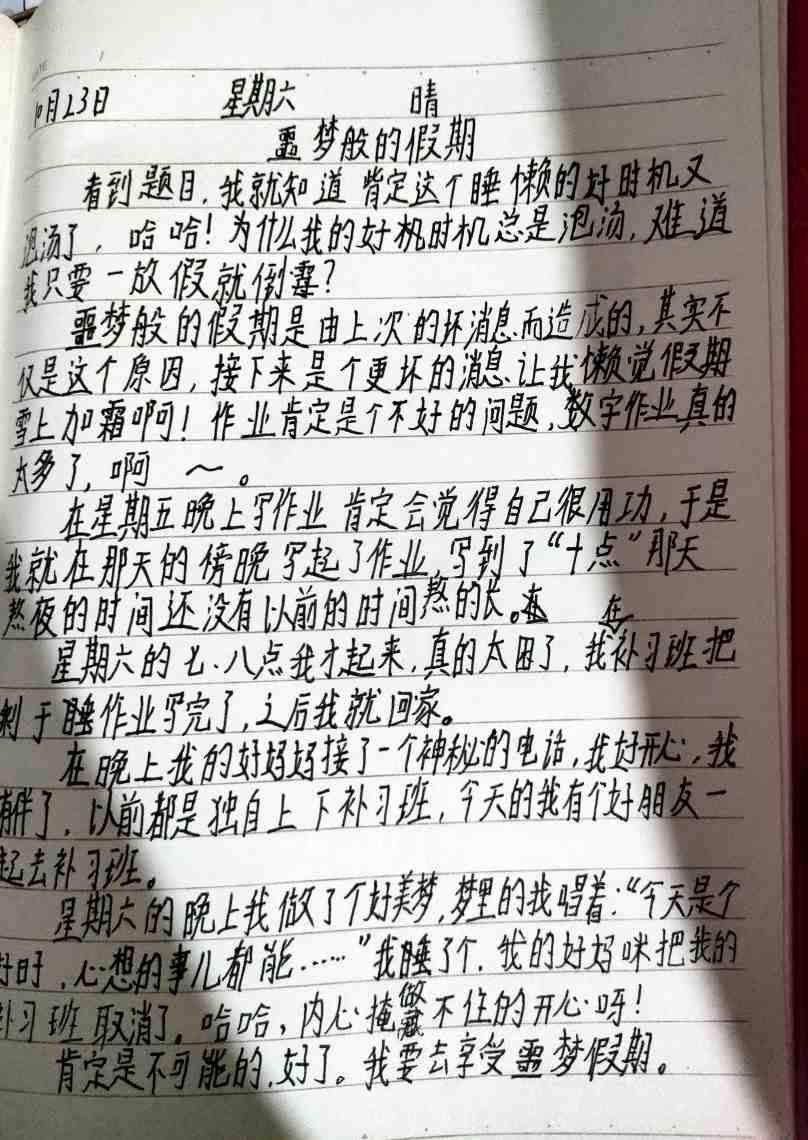 DATE
10月23日 星期六 晴
噩梦般的假期
看到题目,我就知道 肯定这个睡懒的好时机又
泡汤了,哈哈!为什么我的好机时机总是泡汤,难道
我只要一放假就倒霉?
噩梦般的假期是由上次的坏消息而造成的,其实不
仅是这个原因,接下来是个更坏的消息让我懒觉假期
雪上加霜啊!作业肯定是个不好的问题,数字作业真的
太多了,啊 ~。
在星期五晚上写作业 肯定会觉得自己很用功,于是
我就在那天的傍晚写起了作业,写到了“十点”那天
熬夜的时间还没有以前的时间熬的长。在 在
星期六的七·八点我才起来,真的太困了,我补习班把
剩于睡作业写完了,之后我就回家。
在晚上我的好妈妈接了一个神秘的电话,我好开心,我
有伴了,以前都是独自上下补习班,今天的我有个好朋友一
起去补习班。
星期六的晚上我做了个好美梦,梦里的我唱着:“今天是个
好日,心想的事儿都能……”我睡了个,我的好妈咪把我的
补习班取消了。哈哈,内心掩不住的开心呀!
肯定是不可能的,好了。我要去享受噩梦假期。